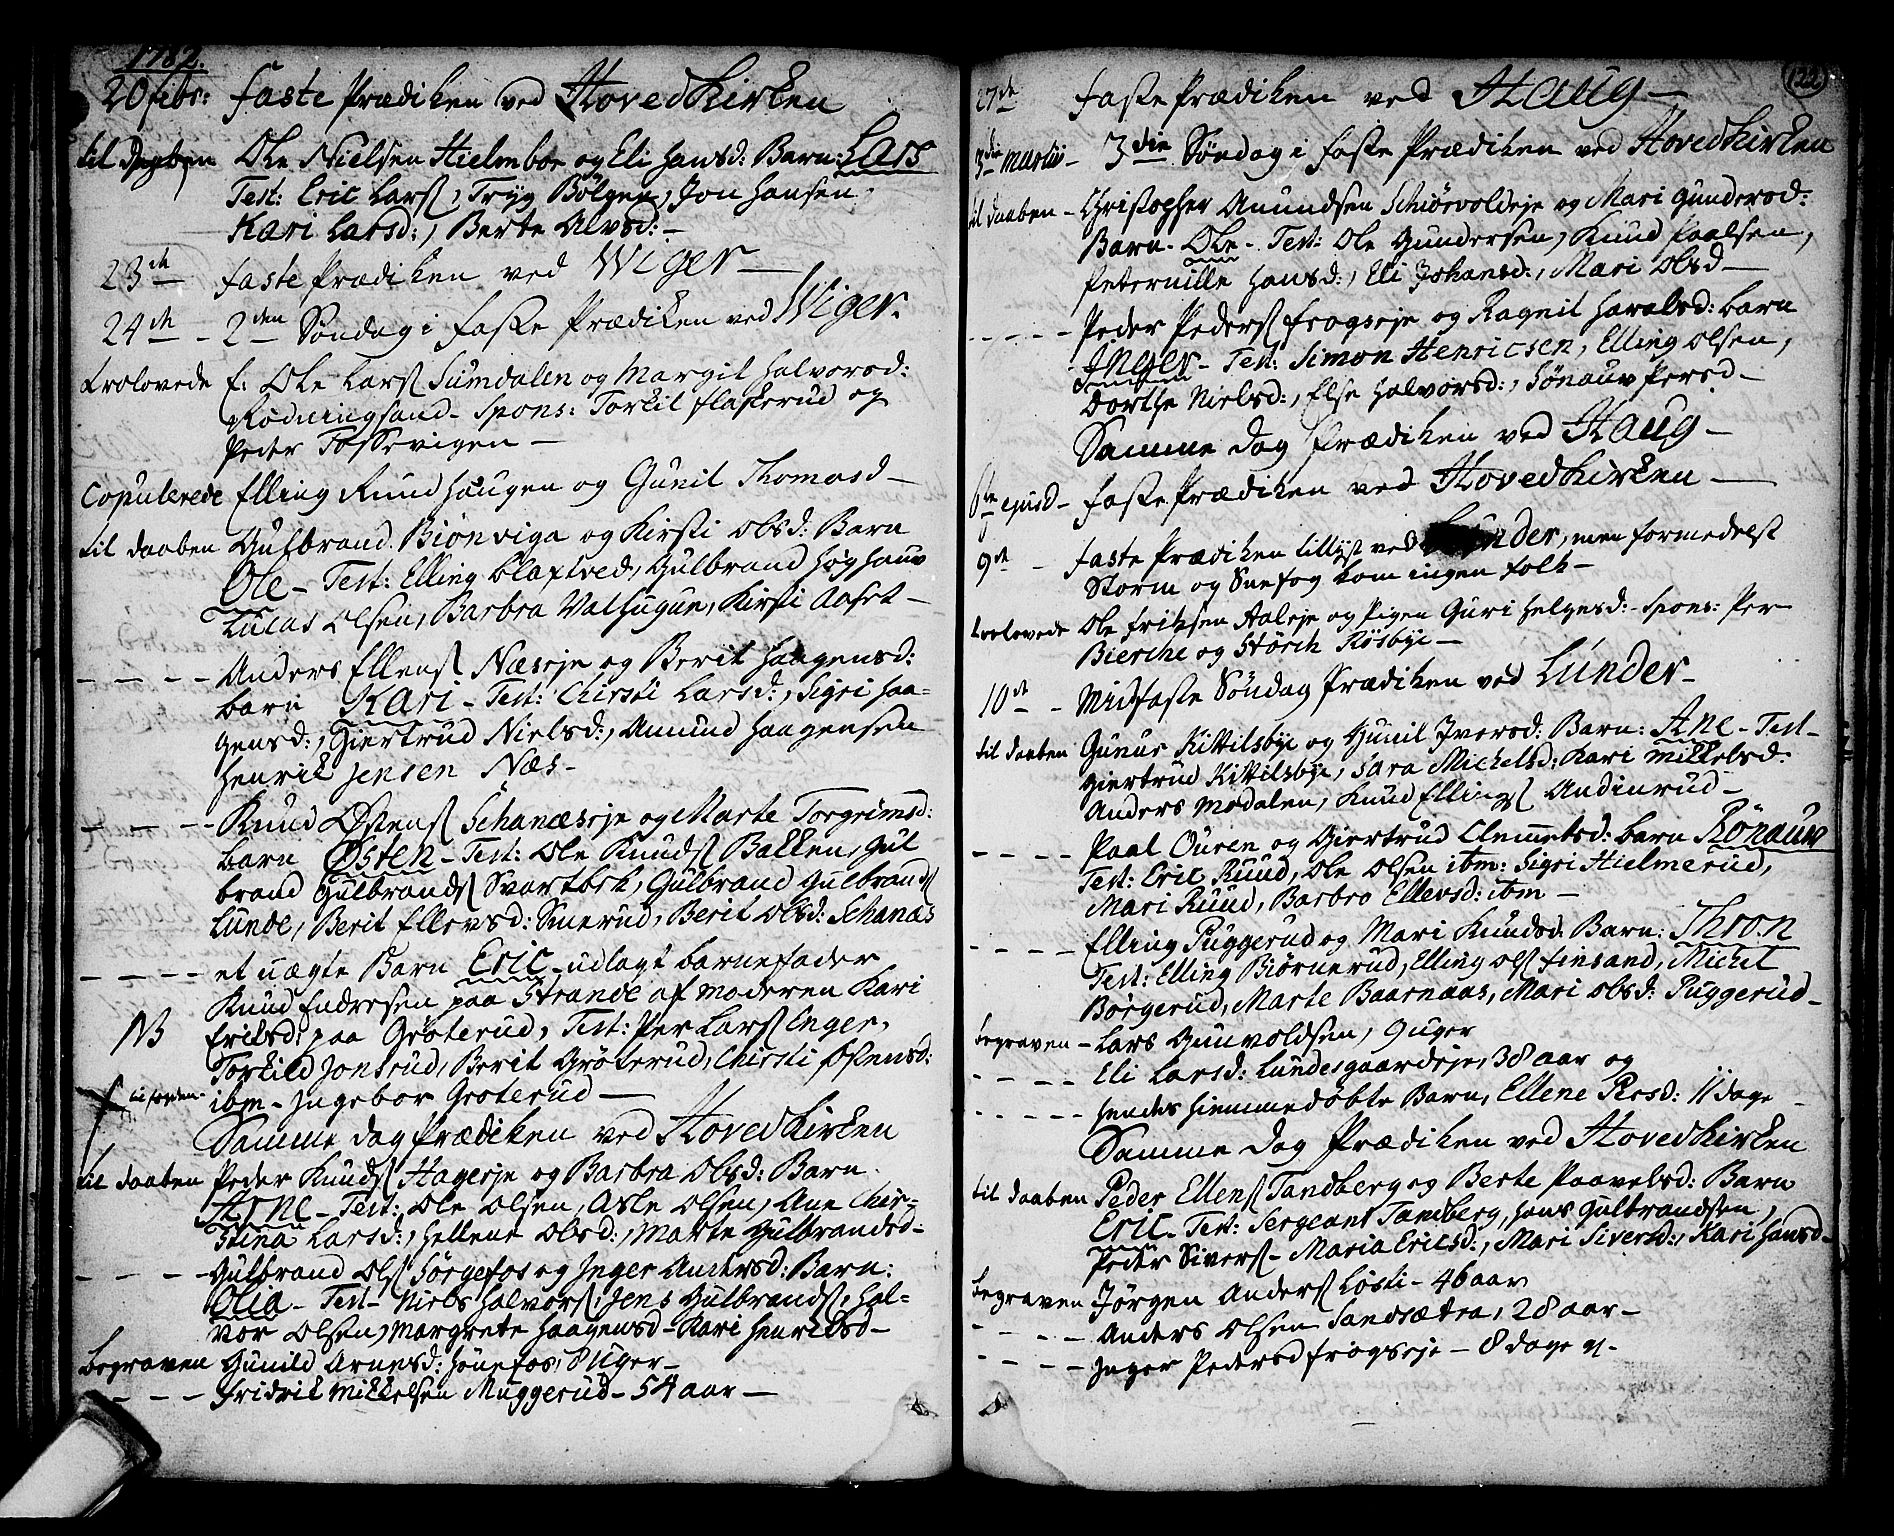 1782.
20 febr: Faste Prædiken ved Hovedkirken
til Daaben Ole Nielsen Hielmboe og Eli Hansd: Barn: Lars
Test: Eric Lars, Tryg Bölgen, Jon Hansen
Kari Larsd:, Berte Alvsd: –
23de Faste Prædiken ved Wiger –
24de – 2den Söndag i Faste Prædiken ved Wiger.
Trolovede E: Ole Lars Sumdalen og Margit Halvorsd:
Rödningsand – Spons: Torkil Flaskerud og
Peder Tossevigen –
Copulerede Elling Ruud Haugen og Gunil Thomasd –
til daaben Gulbrand Biönviga og Kirsti Olsd: Barn
Ole – Test: Elling Olaftved, Gulbrand Höghauv
Lucas Olsen, Barbra Valhugun, Kirsti Aaset –
– – – – Anders Ellens Næseje og Berit Haagensd:
barn Kari – Test: Chirsti Larsd:, Sigri Haa-
gensd:, Giertrud Nielsd:, Amund Haagensen
Henrik Jensen Næs –
– – – – Knud Østens Schanæseje og Marte Torgrimsd:
barn Østen – Test: Ole Knuds Bakken, Gul
brand Gulbrands Svartbek, Gulbrand Gulbrands
Lunde, Berit Ellevsd: Smerud, Berit Olsd: Schanæs
– – – – et uægte Barn Eric – udlagt barnefader
Knud Endresen paa Strande af moderen Kari
NB Eriksd: paa Gröterud, Test: Per Lars Enger,
Torkild Jonsrud, Berit Gröterud, Chirsti Østensd:
ibm – Ingebor Gröterud –
Samme dag Prædiken ved Hovedkirken
til daaben Peder Knuds Hageeje og Barbra Olsd: Barn
Arne – Test: Ole Olsen, Asle Olsen, Ane Chir-
stina Larsd:, Hellene Olsd:, Marte Gulbrandsd –
– – – – Gulbrand Ols Hörgefos og Inger Andersd: Barn:
Olia – Test – Niels Halvors, Jens Gulbrands, Hal-
vor Olsen, Margrete Haagensd – Kari Henriksd –
Begraven Gunild Arnesd: Hönefos, 8 uger –
– – – Fridrik Mikkelsen Muggerud – 54 aar –
122
27de Faste Prædiken ved Haug –
3die Martii – 3die Söndag i Faste Prædiken ved Hovedkirken
til daaben – Christopher Anundsen Schiörvoldeje og Mari Gundersd:
Barn – Ole – Test: Ole Gundersen, Knud Paalsen,
Peternille Hansd:, Eli Johansd:, Mari Olsd –
– – – – Peder Peders Frogseje og Ragnil Haralsd: barn
Inger – Test: Simon Henricsen, Elling Olsen,
Dorthe Nielsd:, Else Halvorsd:, Sönauv Persd –
Samme Dag Prædiken ved Haug –
6te ejusd – Faste Prædiken ved Hovedkirken –
9de – Faste Prædiken tillyst ved Lunder, men formedelst
Storm og Sneefog kom ingen folk –
trolovede Ole Eriksen Aaleje og Pigen Guri Helgesd: – Spons: Per
Bierche og Störch Rösbye –
10de – Midfaste Söndag Prædiken ved Lunder –
til daaben Gunur Kittilsbye og Gunil Iversd: Barn: Ane – Test –
Giertrud Kittilsbye, Sara Michelsd: Kari Mikkelsd:
Anders Modalen, Knud Ellings Andinrud –
– – – – Paal Ouren og Giertrud Clemmetsd: barn Rönauv
Test: Eric Ruud, Ole Olsen ibm: Sigri Hielmerud,
Mari Ruud, Barbro Ellevsd: ibm –
– – – – Elling Puggerud og Mari Knudsd: Barn: Thron
Test: Elling Biörnerud, Elling Ols Finsand, Michel
Börgerud, Marte Baarnaas, Mari Olsd: Puggerud –
begraven – Lars Gunvoldsen, 9 uger
– – – – Eli Larsd: Lundesgaardeje, 38 aar og
– – – – – Hendes hiemmedöbte Barn, Ellene Persd: 11 dage –
Samme Dag Prædiken ved Hovedkirken
til daaben Peder Ellens Tandberg og Berte Paavelsd: Barn
Eric – Test: Sergeant Tandberg, Hans Gulbrandsen,
Peder Sivers – Maria Ericsd:, Mari Siversd:, Kari Hansd –
begraven Jörgen Anders Lösti – 46 aar
– – – – Anders Olsen Sandsætra, 28 aar –
– – – – Inger Pedersd Frogseje – 8 dage gl –